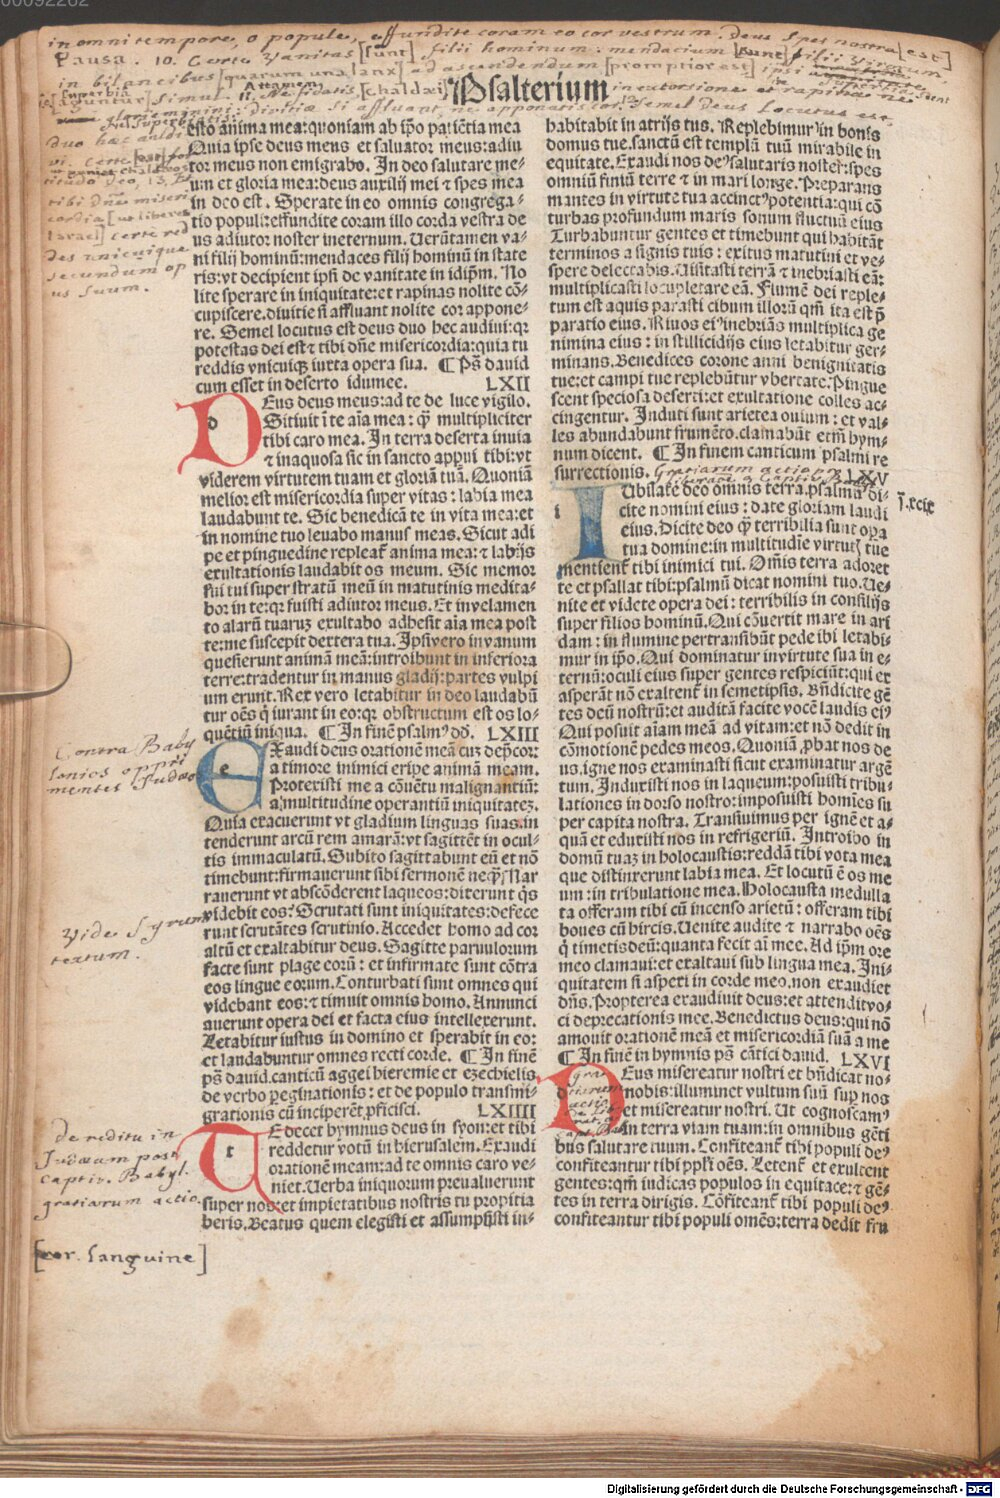 in omni tempore, o popule, effundite coram eo cor vestrum. Deus Spes nostra [est]
Pausa. 10. Certe Vanitas [sunt] filii hominum: mendacium [sunt] filii Virorum
in bilancibus [quarum una lanx] ad ascendendum [promptior est] ipsi
Psalterium
esto anima mea: quoniam ab ip̄o patiētia mea
Quia ipse deus meus et saluator meus: adiu
tor meus non emigrabo. In deo salutare me⸗
um et gloria mea: deus auxilij mei ⁊ spes mea
in deo est. Sperate in eo omnis congrega⸗
tio populi: effundite coram illo corda vestra de
us adiutor noster ineternum. Uerūtamen va⸗
ni filij hominū: mendaces filij hominū in state
ris: vt decipient ipsi de vanitate in idip̄m. No
lite sperare in iniquitate: et rapinas nolite cō⸗
cupiscere. diuitie si affluant nolite cor appone⸗
re. Semel locutus est deus duo hec audiui: qr
potestas dei est ⁊ tibi dn̄e misericordia: quia tu
reddis vnicuiqȝ iuxta opera sua. ¶ Ps̄ dauid
cum esset in deserto idumee. LXII
DEus deus meus: ad te de luce vigilo.
Sitiuit ī te aīa mea: qȝ multipliciter
tibi caro mea. In terra deserta inuia
⁊ inaquosa sic in sancto appui tibi: vt
viderem virtutem tuam et gloriā tuā. Quoniā
melior est misericordia super vitas: labia mea
laudabunt te. Sic benedicā te in vita mea: et
in nomine tuo leuabo manus meas. Sicut adi
pe et pinguedine repleat̄ anima mea: ⁊ labijs
exultationis laudabit os meum. Sic memor
fui tui super stratū meū in matutinis medita⸗
bor in te: qr fuisti adiutor meus. Et invelamen
to alarū tuaruȝ exultabo adhesit aīa mea post
te: me suscepit dextera tua. Ipsi vero in vanum
quesierunt animā meā: introibunt in inferiora
terre: tradentur in manus gladij: partes vulpi
um erunt. Rex vero letabitur in deo laudabū
tur oēs q̄ iurant in eo: qr obstructum est os lo⸗
quētiū iniqua. ¶ In finē psalmꝰ dō. LXIII
EXaudi deus orationē meā cuȝ dep̄cor:
a timore inimici eripe animā meam.
Protexisti me a cōuētu malignantiū:
a multitudine operantiū iniquitateȝ.
Quia exacuerunt vt gladium linguas suas. in
tenderunt arcū rem amarā: vt sagittēt in occul⸗
tis immaculatū. Subito sagittabunt eū et nō
timebunt: firmauerunt sibi sermonē neqȝ. Nar
rauerunt vt abscōderent laqueos: dixerunt q̄s
videbit eos? Scrutati sunt iniquitates: defece
runt scrutātes scrutinio. Accedet homo ad cor
altū et exaltabitur deus. Sagitte paruulorum
facte sunt plage eorū: et infirmate sunt cōtra
eos lingue eorum. Conturbati sunt omnes qui
videbant eos: ⁊ timuit omnis homo. Annunci
auerunt opera dei et facta eius intellexerunt.
Letabitur iustus in domino et sperabit in eo:
et laudabuntur omnes recti corde. ¶ In finē
ps̄ dauid. canticū aggei hieremie et ezechielis
de verbo pereginationis: et de populo transmi⸗
grationis cū inciperēt p̄ficisci. LXIIII
TE decet hymnus deus in syon: et tibi
reddetur votū in hierusalem. Exaudi
orationē meam: ad te omnis caro ve⸗
niet. Uerba iniquorum preualuerunt
super nos: et impietatibus nostris tu propitia
beris. Beatus quem elegisti et assumpsisti in⸗
habitabit in atrijs tus. Replebimur in bonis
domus tue. sanctū est templū tuū mirabile in
equitate. Exaudi nos deꝰ salutaris noster: spes
omniū finiū terre ⁊ in mari longe. Preparans
mantes in virtute tua accinctꝰ potentia: qui cō
turbas profundum maris sonum fluctuū eius
Turbabuntur gentes et timebunt qui habitāt
terminos a signis tuis: exitus matutini et ve⸗
spere delectabis. Uisitasti terrā ⁊ inebriasti eā:
multiplicasti locupletare eā. Flumē dei reple⸗
tum est aquis parasti cibum illorū qm̄ ita est p̄
paratio eius. Riuos eiꝰ inebriās multiplica ge
nimina eius: in stillicidijs eius letabitur ger⸗
minans. Benedices corone anni benignitatis
tue: et campi tue replebūtur vbertate. Pingue
scent speciosa deserti: et exultatione colles ac⸗
cingentur. Induti sunt arietea ouium: et val⸗
les abundabunt frumēto. clamabūt etm̄ hym⸗
num dicent. ¶ In finem canticum psalmi re
surrectionis. Gratiarum actio pro LXV
IUbilate deo omnis terra. psalmū di⸗
cite nomini eius: date gloriam laudi
eius. Dicite deo q̄ terribilia sunt opa
tua domine: in multitudīe virtutȝ tue
mentient̄ tibi inimici tui. Om̄is terra adoret
te et psallat tibi: psalmū dicat nomini tuo. Ue⸗
nite et videte opera dei: terribilis in consilijs
super filios hominū. Qui cōuertit mare in ari
dam: in flumine pertransibūt pede ibi letabi⸗
mur in ip̄o. Qui dominatur invirtute sua in e⸗
ternū: oculi eius super gentes respiciūt: qui ex
asperāt nō exaltent̄ in semetipsis. Bn̄dicite gē
tes deū nostrū: et auditā facite vocē laudis eiꝰ
Qui posuit aīam meā ad vitam: et nō dedit in
cōmotionē pedes meos. Quoniā p̄bat nos de
us. igne nos examinasti sicut examinatur argē
tum. Induxisti nos in laqueum: posuisti tribu⸗
lationes in dorso nostro: imposuisti homīes su
per capita nostra. Transiuimus per ignē et a⸗
quā et eduxisti nos in refrigeriū. Introibo in
domū tuaȝ in holocaustis: reddā tibi vota mea
que distinxerunt labia mea. Et locutū ē os me
um: in tribulatione mea. Holocausta medulla
ta offeram tibi cū incenso arietū: offeram tibi
boues cū hircis. Uenite audite ⁊ narrabo oēs
q̄ timetis deū: quanta fecit aī mee. Ad ip̄m ore
meo clamaui: et exaltaui sub lingua mea. Ini⸗
quitatem si aspexi in corde meo. non exaudiet
dn̄s. Propterea exaudiuit deus: et attendit vo⸗
ci deprecationis mee. Benedictus deus: qui nō
amouit orationē meā et misericordiā suā a me
¶ In finē in hymnis ps̄ cātici dauid. LXVI
DEus misereatur nostri et bn̄dicat no⸗
nobis: illuminet vultum suū sup̄ nos
et misereatur nostri. Ut cognoscamꝰ
in terra viam tuam: in omnibus gēti
bus salutare tuum. Confiteant̄ tibi populi deꝰ
confiteantur tibi pp̄li oēs. Letent̄ et exultent
gentes: qm̄ iudicas populos in equitate: ⁊ gē⸗
tes in terra dirigis. Cōfiteant̄ tibi populi deꝰ
confiteantur tibi populi omēs: terra dedit fru
tibi Dn̄e miseri
cordia [ut liberes
Israel] certe red
des unicuique
secundum op
us suum.
Contra Baby
lonios oppri
mentes Judaeos
Vide Syrum
textum.
De reditu in
Judaeam post
Captiv. Babyl.
gratiarum actio.
[cor. sanguine]
Digitalisierung gefördert durch die Deutsche Forschungsgemeinschaft - DFG